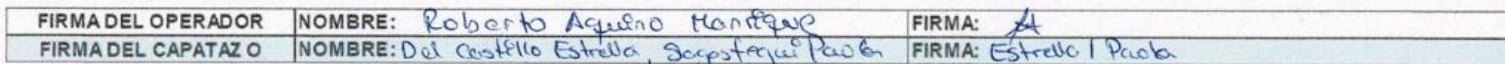 FIRMA DEL OPERADOR NOMBRE: Roberto Aquino Manrique FIRMA:
FIRMA DEL CAPATAZ O NOMBRE: Del Castillo Estrella, Paola FIRMA: Estrella / Paola